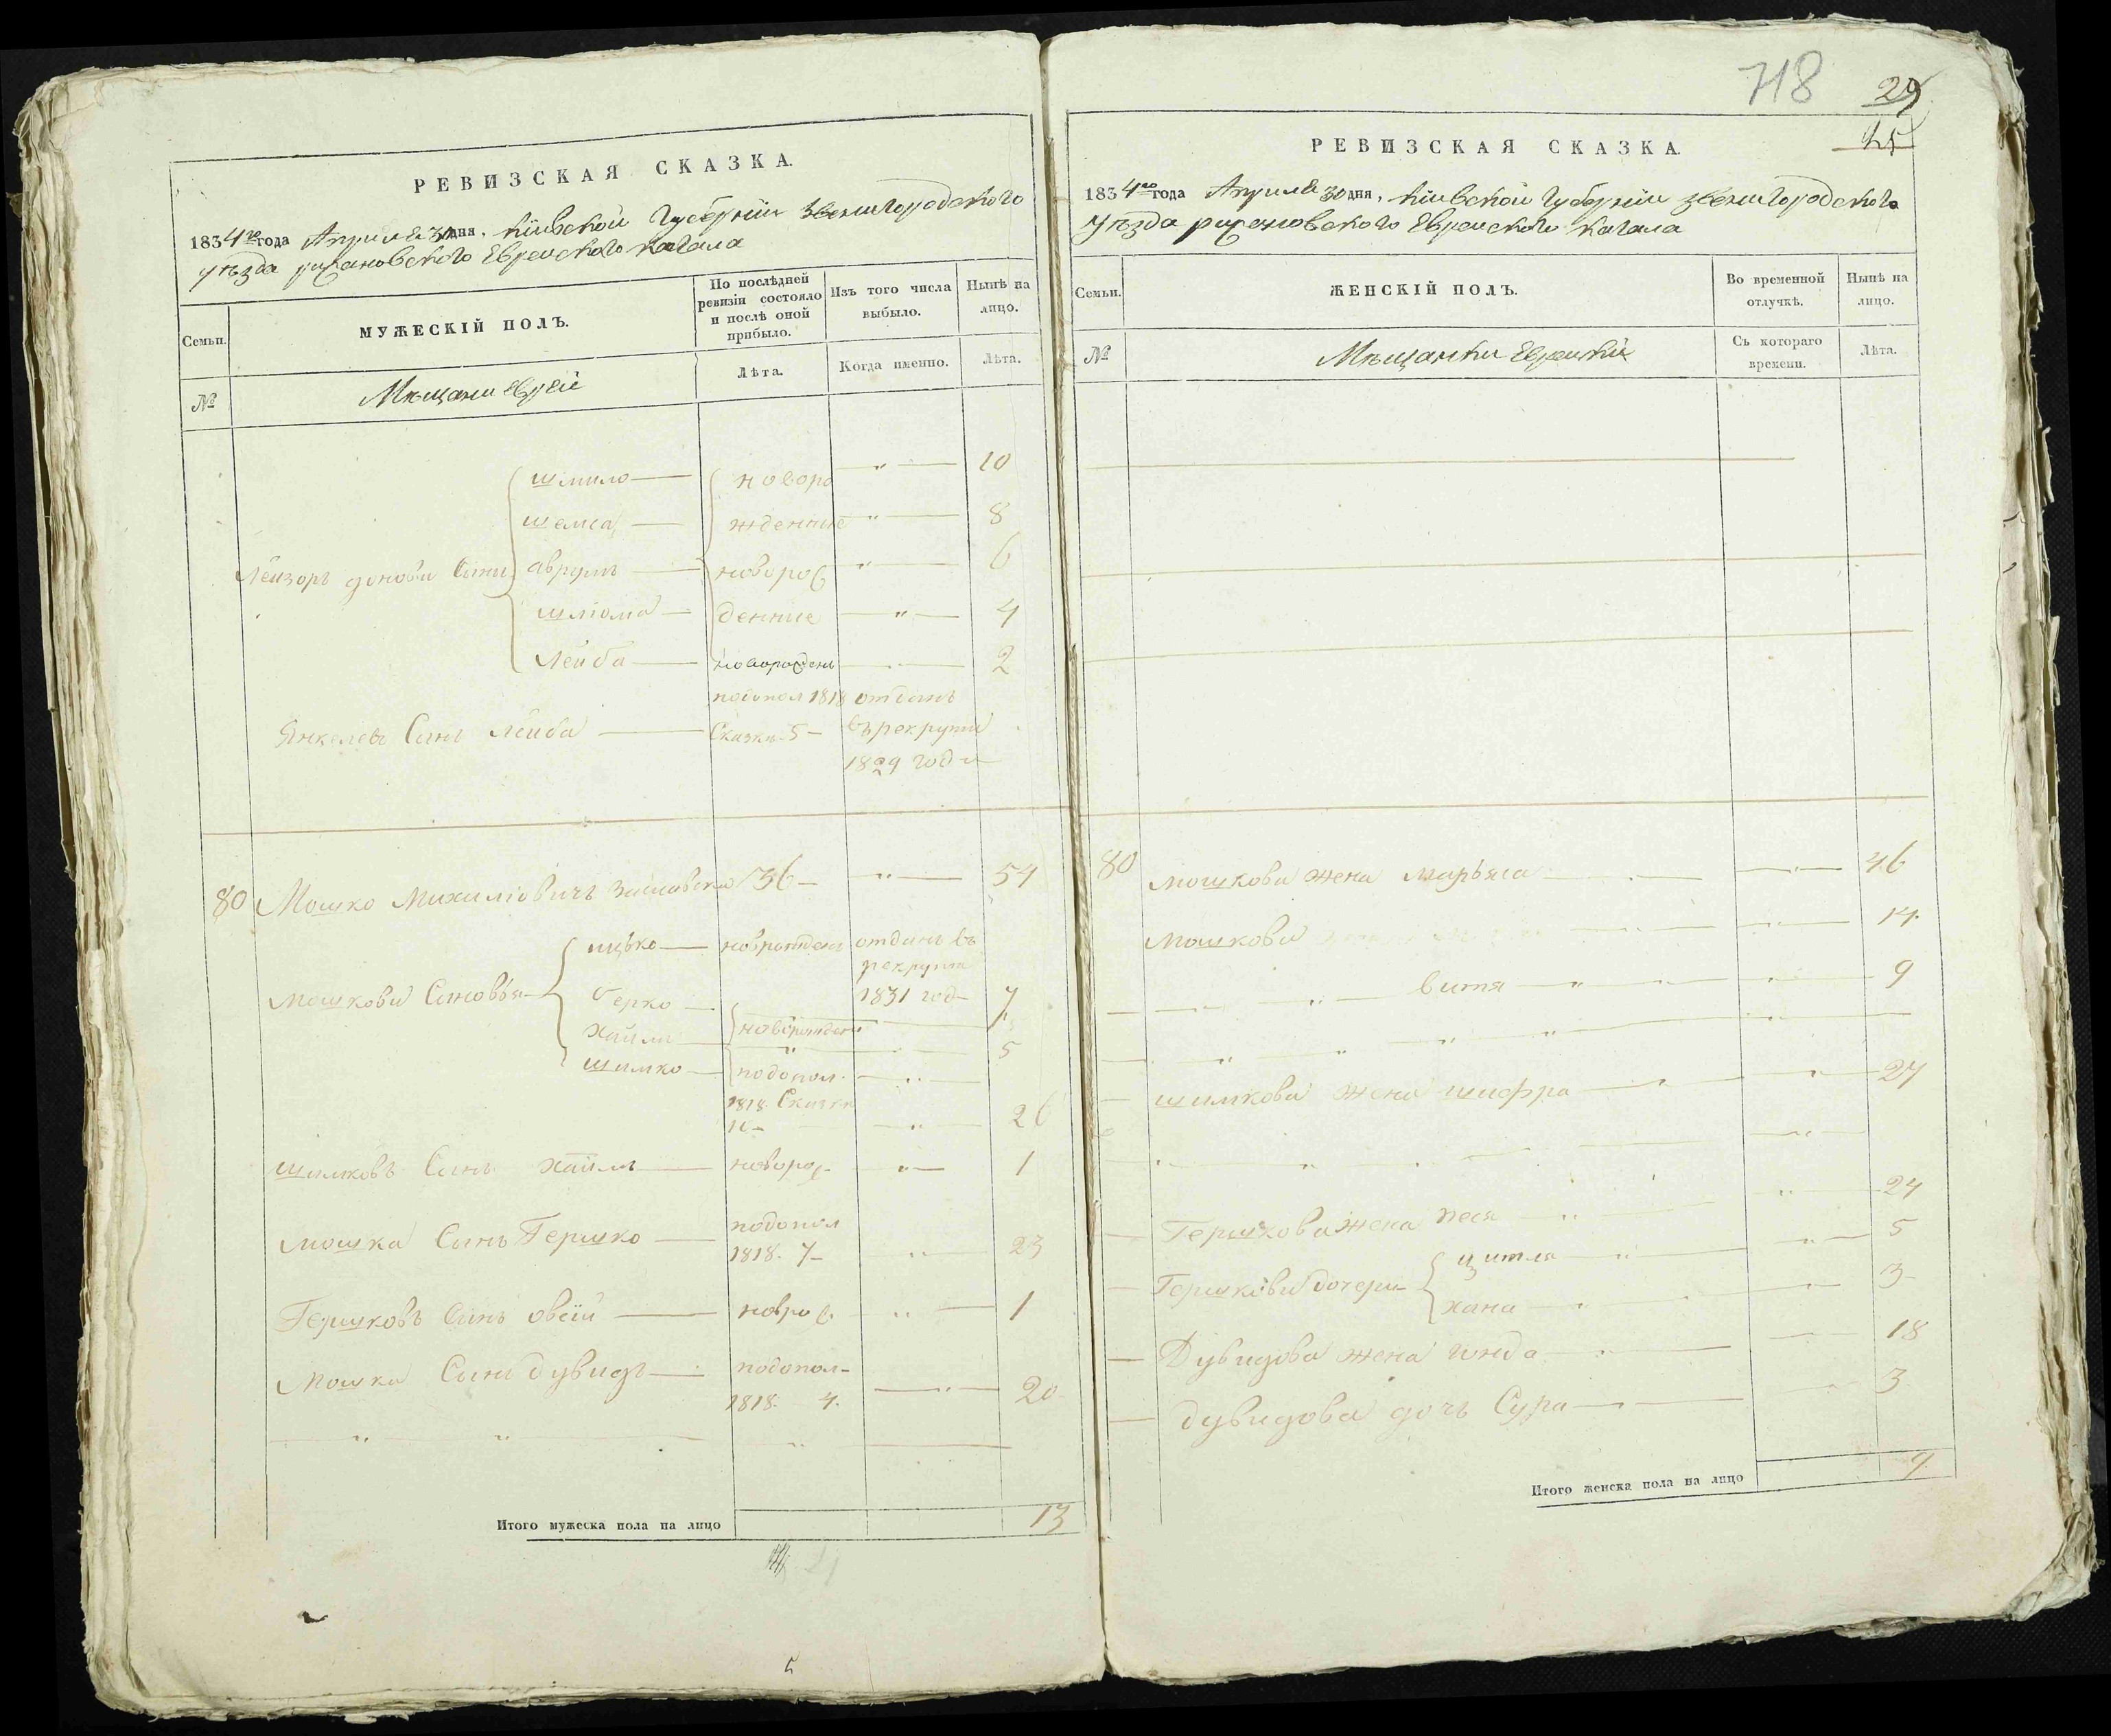 718
29
25
РЕВИЗСКАЯ СКАЗКА.
1834го года Апреля 30 дня. Кіивской Губерніи Звенигородского
уѣзда рижановского Евреиского кагала
Семьи.
МУЖЕСКІЙ ПОЛЪ.
По послѣдней ревизіи состояло и послѣ оной прибыло.
Изъ того числа выбыло.
Нынѣ на лицо.
№
Мѣщани Евреи
Лѣта.
Когда именно.
Лѣта.
шмило новоро " 10
шемса жденние " 8
Лейзоръ сини аврумъ новорож " 6
шліома денние " 4
Лейба новорожденъ 2
подопол 1818 отданъ
Янкелевъ Синъ Лейба Сказки 5 въ рекрути
1829 года
80 Мошко Михиліовичъ 36 " 54
ицько новрожденъ отданъ въ
рекрути
Мошкови Синовья берко 1831 год 7
Хаимъ новорождени 5
шимко подопол.
1818. Сказки
10 " 26
шимковъ Синъ хаимъ новорож. " 1
мошка Синъ Гершко подопол
1818. 7 " 23
Гершковъ Синъ овсій новрож. " 1
Мошка Синъ дувидъ подопол
1818. 4. " 20
" " "
Итого мужеска пола на лицо 13
РЕВИЗСКАЯ СКАЗКА.
1834го года Апреля 30 дня. Кіивской Губерніи Звенигородского
Уѣзда рижановского Евреиского кагала
Семьи.
ЖЕНСКІЙ ПОЛЪ.
Во временной отлучкѣ.
Нынѣ на лицо.
№
Мѣщанки Евреикіи
Съ котораго времени.
Лѣта.
80 мошкова жена марьяса " 46
Мошкови " 14.
" витя " " 9
" " " " "
шимкова жена шифра " " 27
" " "
Гершкова жена песя " " 24
цитля " " 5
Гершкови дочери
хана " " 3
Дувидова жена юнда " 18
дувидова дочь Сура " 3
Итого женска пола на лицо 9